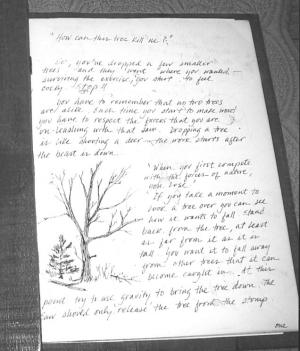 "How can this tree kill me?"
So, you've dropped a few smaller
trees and they went where you wanted –
surviving the exercise, you start to feel
cocky. Stop!!
You have to remember that no two trees
are alike. Each time you start to make wood
you have to respect the forces that you are
un-leashing with that saw. Dropping a tree
is like shooting a deer – the work starts after
the beast is down.
When you first compete
with the forces of nature,
you lose.
If you take a moment to
look a tree over you can see
how it wants to fall. Stand
back from the tree, at least
as far from it as it is
tall. You want it to fall away
from other trees that it can
become caught in. At this
point try to use gravity to bring the tree down. The
saw should only release the tree from the stump.
one